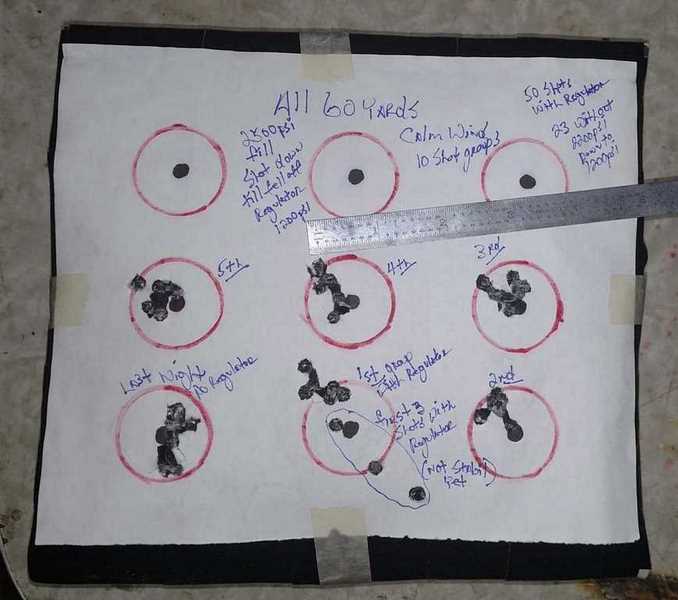 All 60 YARDS
2800psi
fill
Shot down
till fell off
Regulator
1200psi
Calm Wind
10 Shot groups
50 Shots
with Regulator
23 without
2200psi
Down to
1200psi
5th
4th
3rd
Last Night
No Regulator
1st group
with Regulator
First 3
Shots with
Regulator
(Not Stabil
Yet)
2nd